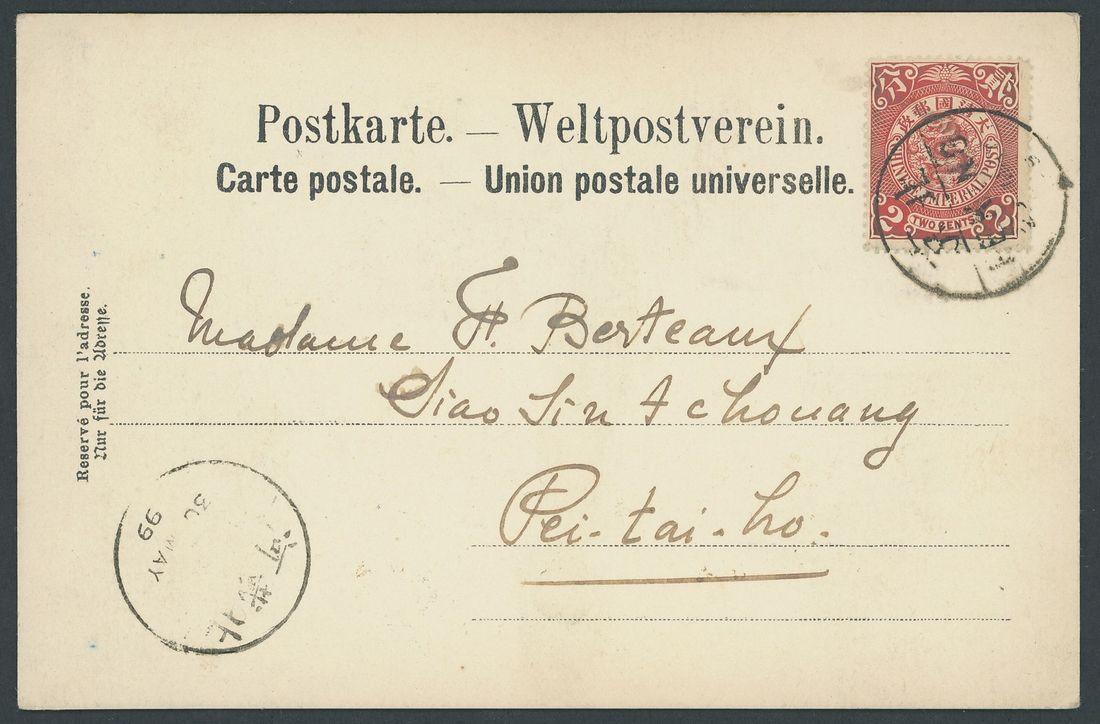 Postkarte. — Weltpostverein.
Carte postale. — Union postale universelle.
大清國郵政
貳 分
IMPERIAL POST
2 TWO CENTS 2
Madame H. Berteaux
Siao Sin Tchouang
Pei-tai-ho.
Reservé pour l'adresse.
Nur für die Adresse.
30 MAY 99
北戴河